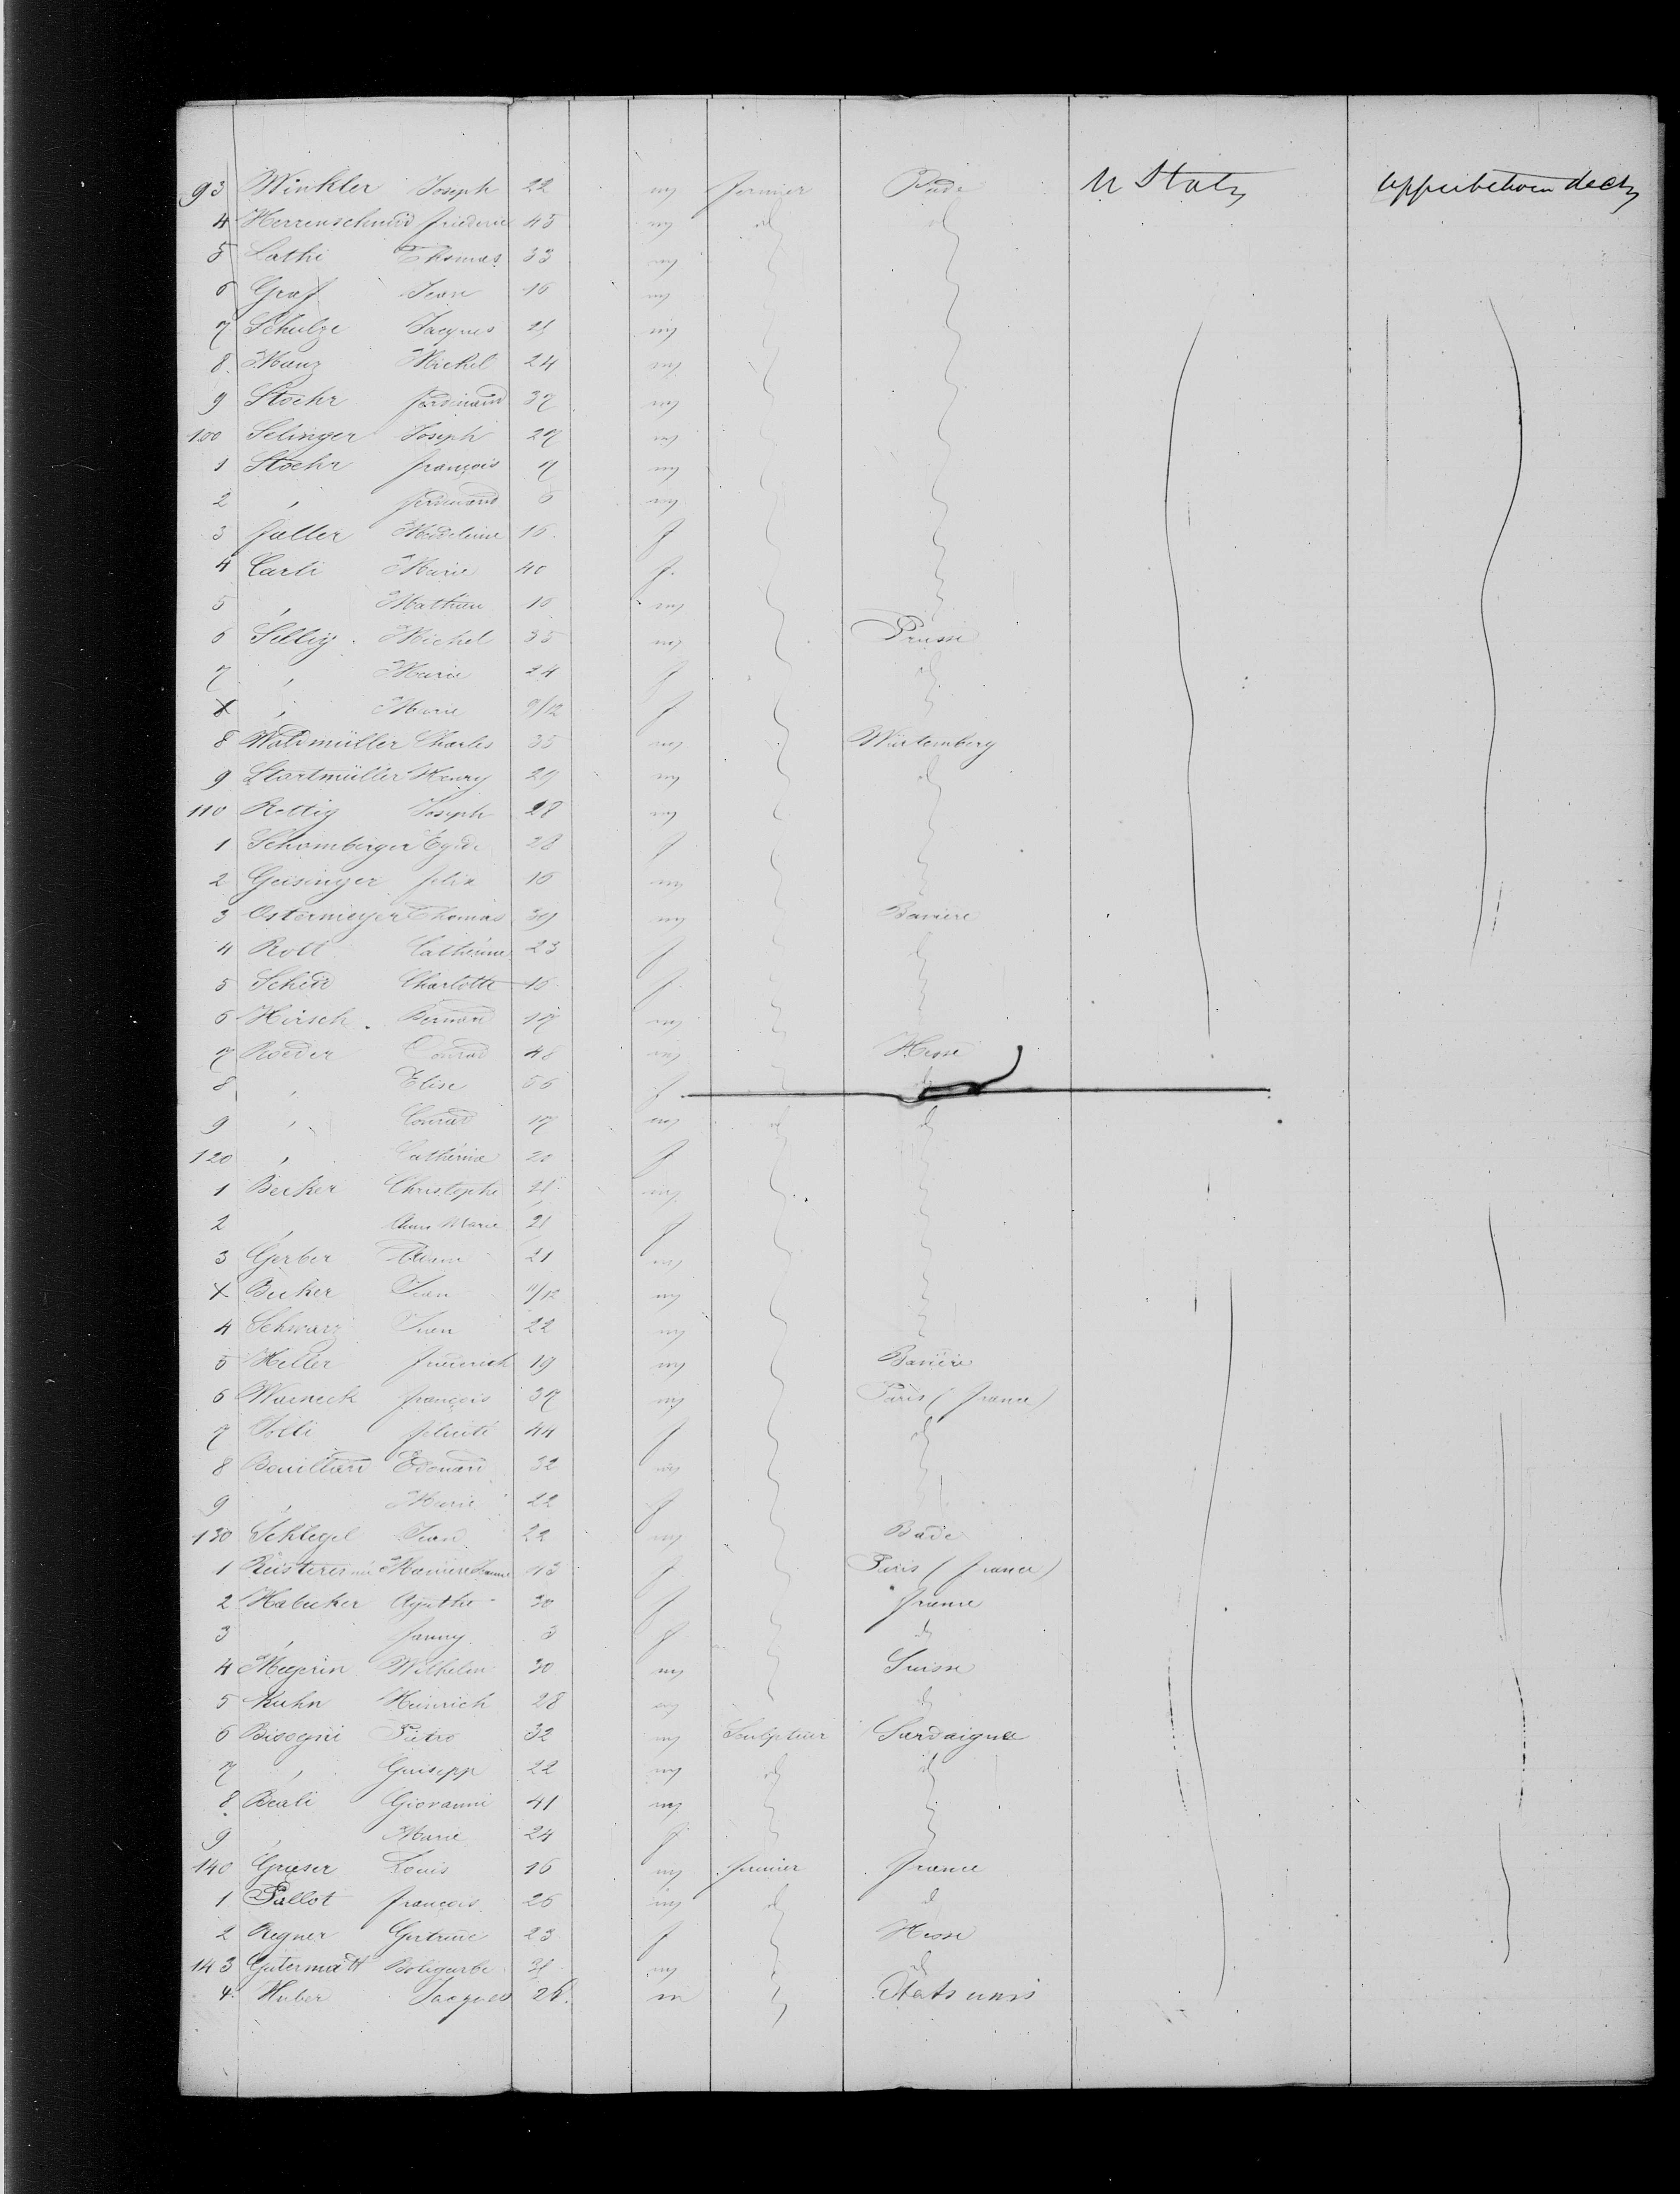 93 Winkler Joseph 22 m fermier Bade U States upper between decks
4 Herrenschmid friederic 45 m id id
5 Lathi Thomas 33 m
6 Graf Jean 16 m
7 Schulze Jacques 21 m
8 Manz Michel 24 m
9 Stoehr ferdinand 37 m
100 Selinger Joseph 27 m
1 Stoehr françois 7 m
2 " ferdinand 6 m
3 faller Madeleine 16 f
4 Carli Marie 40 f
5 " Mathieu 10 m
6 Sellig Michel 35 m Prusse
7 " Marie 24 f id
X " Marie 9/12 f
8 Waldmüller Charles 35 m Würtemberg
9 Startmüller Henry 29 m id
110 Rettig Joseph 28 m
1 Schomberger Egide 28 f
2 Geisinger felix 16 m
3 Ostermeyer Thomas 39 m Bavière
4 Rott Catherine 23 f id
5 Scheid Charlotte 16 f
6 Hirsch Bernard 17 m
7 Roeder Conrad 48 m Hesse
8 " Elise 56 f id
9 " Conrad 17 m id id
120 " Catherine 20 f
1 Becker Christophe 21 m
2 " Anne Marie 21 f
3 Gerber Adam 21 m
X Becker Jean 11/12 m
4 Schwarz Jean 22 m
5 Heller friederich 19 m Bavière
6 Warneck françois 37 m Paris (france)
7 Tolli félicité 44 f id
8 Bouillard Edouard 32 m
9 " Marie 22 f
130 Schlegel Jean 22 m Bade
1 43 f Paris (france)
2 Habecker Agathe 30 f france
3 " fanny 3 f id
4 Meyerin Wilhelm 30 m Suisse
5 Kuhn Heinrich 28 m id
6 Bisogni Pietro 32 m Sculpteur Sardaigne
7 " Guisepp 22 m id id
8 Beali Giovanni 41 m
9 " Marie 24 f
140 Grieser Louis 16 m fermier france
1 Pallot françois 26 m id id
2 Regner Gertrude 23 f Hesse
143 Gutermatt 31 m id
4 Huber Jacques 26 m Etats unis